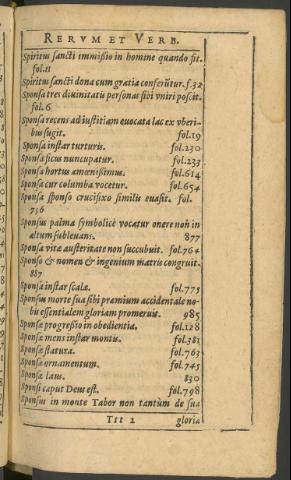 RERVM ET VERB.
Spiritus sancti immißio in homine quando fit.
fol.11
Spiritus sancti dona cum gratia conferũtur. f.32
Sponsa tres diuinitatis personas sibi vniri poscit.
fol. 6
Sponsa recens ad iustitiam euocata lac ex vberi-
bus sugit. fol.19
Sponsa instar turturis. fol.230
Sponsa ficus nuncupatur. fol.233
Sponsa hortus amœnißimus. fol.614
Sponsa cur columba vocetur. fol.654
Sponsa sponso crucifixo similis euasit. fol.
736
Sponsus palma symbolicè vocatur onere non in
altum subleuans. 877
Sponsa vitæ austeritate non succubuit. fol.764
Sponso & nomen & ingenium matris congruit.
887
Sponsa instar scalæ. fol.775
Sponsus morte sua sibi præmium accidentale no-
bis essentialem gloriam promeruit. 985
Sponsæ progreßio in obedientia. fol.128
Sponsæ mens instar montis. fol.381
Sponsæ statura. fol.763
Sponsæ ornamentum. fol.745
Sponsæ laus. 830
Sponsi caput Deus est. fol.798
Sponsus in monte Tabor non tantùm de sua
Ttt 2 gloria